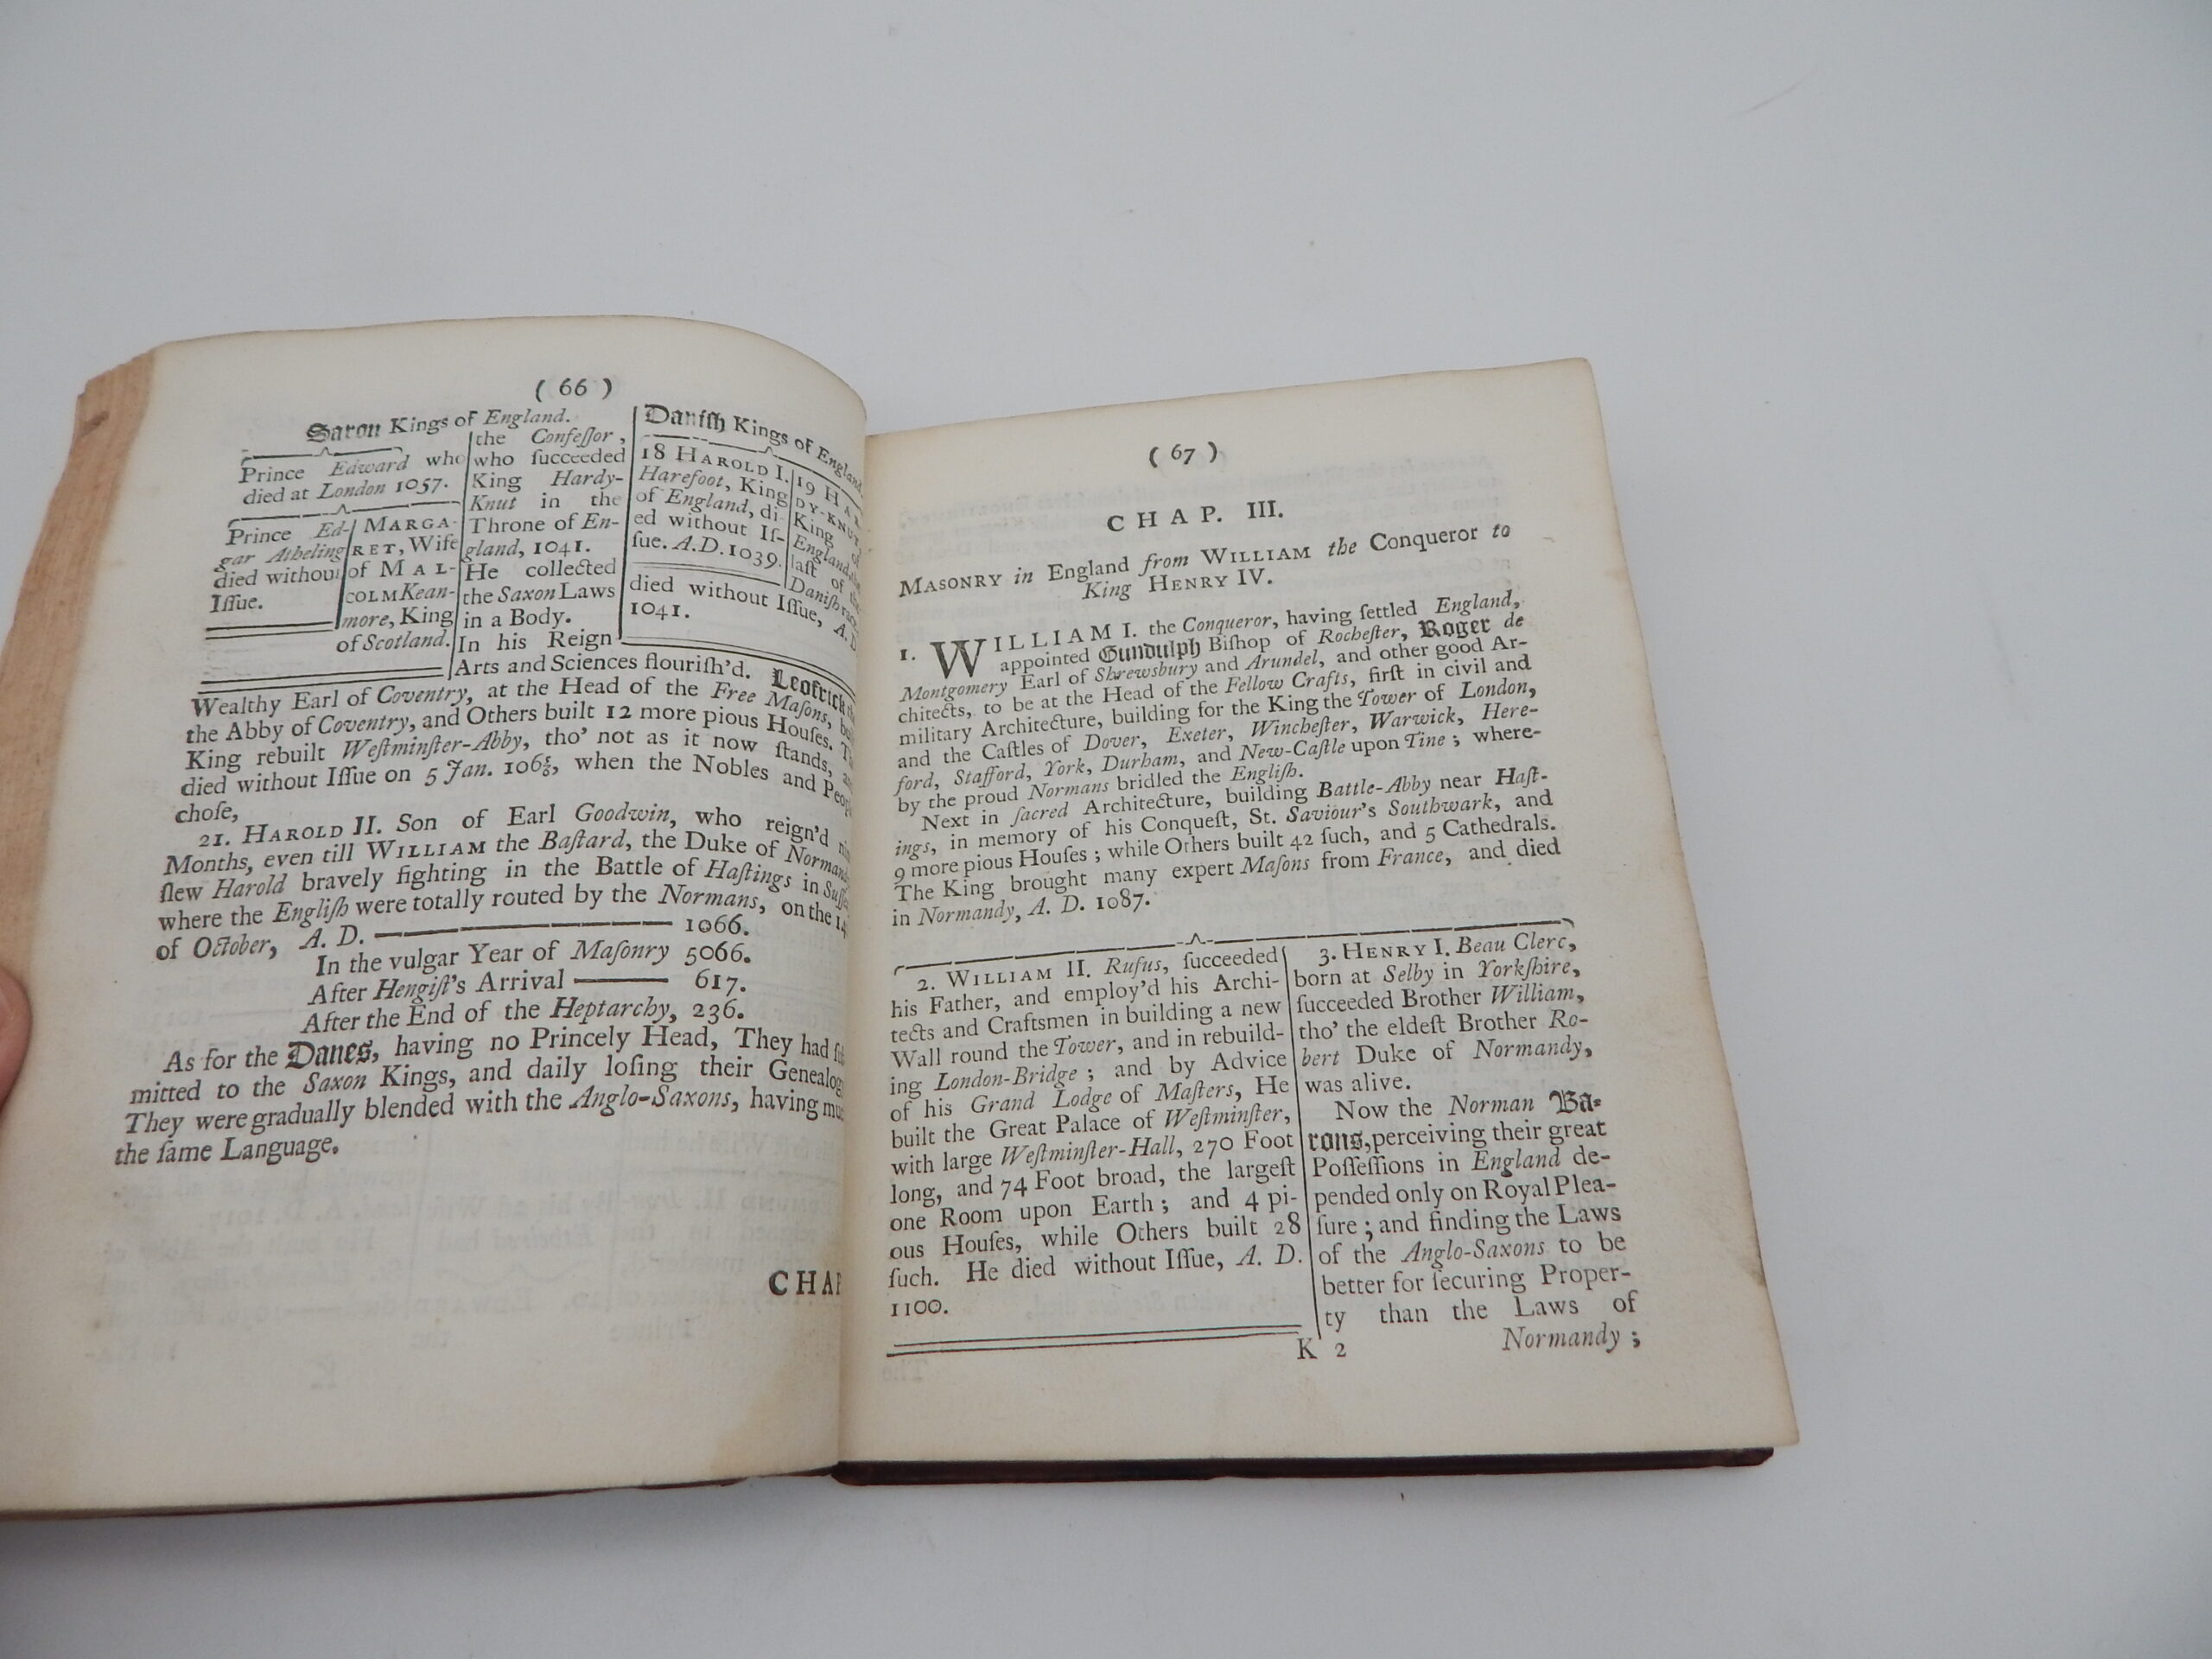 ( 66 )
Saxon Kings of England.
Prince Edward who
died at London 1057.
Prince Ed-
gar Atheling
died without
Iſſue.
MARGA-
RET, Wife
of MAL-
COLM Kean-
more, King
of Scotland.
the Confeſſor,
who ſucceeded
King Hardy-
Knut in the
Throne of En-
gland, 1041.
He collected
the Saxon Laws
in a Body.
In his Reign
Arts and Sciences flouriſh'd. Leofrick
Daniſh Kings of England.
18 HAROLD I.
Harefoot, King
of England, di-
ed without Iſ-
ſue. A.D. 1039.
19 HAR
DY-KNUT
King of
England,
laſt of the
Daniſh race,
died without Iſſue, A. D.
1041.
Wealthy Earl of Coventry, at the Head of the Free Maſons,
the Abby of Coventry, and Others built 12 more pious Houſes.
King rebuilt Weſtminſter-Abby, tho' not as it now ſtands,
died without Iſſue on 5 Jan. 106⅚, when the Nobles and Peop
choſe,
21. HAROLD II. Son of Earl Goodwin, who reign'd
Months, even till WILLIAM the Baſtard, the Duke of Norman
ſlew Harold bravely fighting in the Battle of Haſtings in Suſſ
where the Engliſh were totally routed by the Normans, on the 14
of October, A. D. ———— 1066.
In the vulgar Year of Maſonry 5066.
After Hengiſt's Arrival —— 617.
After the End of the Heptarchy, 236.
As for the Danes, having no Princely Head, They had
mitted to the Saxon Kings, and daily loſing their Genealog
They were gradually blended with the Anglo-Saxons, having mu
the ſame Language.
CHAP
( 67 )
CHAP. III.
MASONRY in England from WILLIAM the Conqueror to
King HENRY IV.
1. WILLIAM I. the Conqueror, having ſettled England,
appointed Gundulph Biſhop of Rocheſter, Roger de
Montgomery Earl of Shrewsbury and Arundel, and other good Ar-
chitects, to be at the Head of the Fellow Crafts, firſt in civil and
military Architecture, building for the King the Tower of London,
and the Caſtles of Dover, Exeter, Wincheſter, Warwick, Here-
ford, Stafford, York, Durham, and New-Caſtle upon Tine; where-
by the proud Normans bridled the Engliſh.
Next in ſacred Architecture, building Battle-Abby near Haſt-
ings, in memory of his Conqueſt, St. Saviour's Southwark, and
9 more pious Houſes; while Others built 42 ſuch, and 5 Cathedrals.
The King brought many expert Maſons from France, and died
in Normandy, A. D. 1087.
2. WILLIAM II. Rufus, ſucceeded
his Father, and employ'd his Archi-
tects and Craftsmen in building a new
Wall round the Tower, and in rebuild-
ing London-Bridge; and by Advice
of his Grand Lodge of Maſters, He
built the Great Palace of Weſtminſter,
with large Weſtminſter-Hall, 270 Foot
long, and 74 Foot broad, the largeſt
one Room upon Earth; and 4 pi-
ous Houſes, while Others built 28
ſuch. He died without Iſſue, A. D.
1100.
3. HENRY I. Beau Clerc,
born at Selby in Yorkſhire,
ſucceeded Brother William,
tho' the eldeſt Brother Ro-
bert Duke of Normandy,
was alive.
Now the Norman Ba-
rons, perceiving their great
Poſſeſſions in England de-
pended only on Royal Plea-
ſure; and finding the Laws
of the Anglo-Saxons to be
better for ſecuring Proper-
ty than the Laws of
K 2 Normandy;